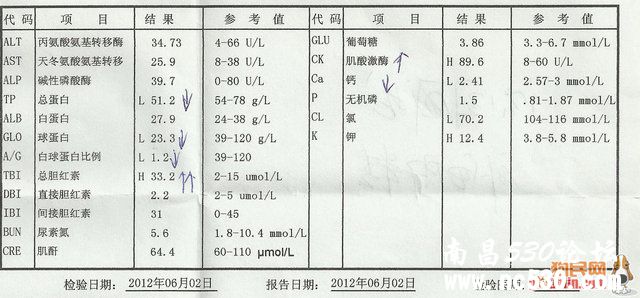 代码 项目 结果 参考值 代码 项目 结果 参考值
ALT 丙氨酸氨基转移酶 34.73 4-66 U/L GLU 葡萄糖 3.86 3.3-6.7 mmol/L
AST 天冬氨酸氨基转移 25.9 8-38 U/L CK 肌酸激酶 ↑ H 89.6 8-60 U/L
ALP 碱性磷酸酶 39.7 0-80 U/L Ca 钙 L 2.41 2.57-3 mmol/L
TP 总蛋白 L 51.2 ↓ 54-78 g/L P 无机磷 1.5 .81-1.87 mmol/L
ALB 白蛋白 27.9 24-38 g/L CL 氯 L 70.2 104-116 mmol/L
GLO 球蛋白 L 23.3 ↓ 39-120 g/L K 钾 H 12.4 3.8-5.8 mmol/L
A/G 白球蛋白比例 L 1.2 ↓ 39-120
TBI 总胆红素 H 33.2 ↑↑ 2-15 umol/L
DBI 直接胆红素 2.2 2-5 umol/L
IBI 间接胆红素 31 0-45
BUN 尿素氮 5.6 1.8-10.4 mmol/L
CRE 肌酐 64.4 60-110 μmol/L
南昌530论坛
检验日期: 2012年06月02日 报告日期: 2012年06月02日 检验医
狗民网